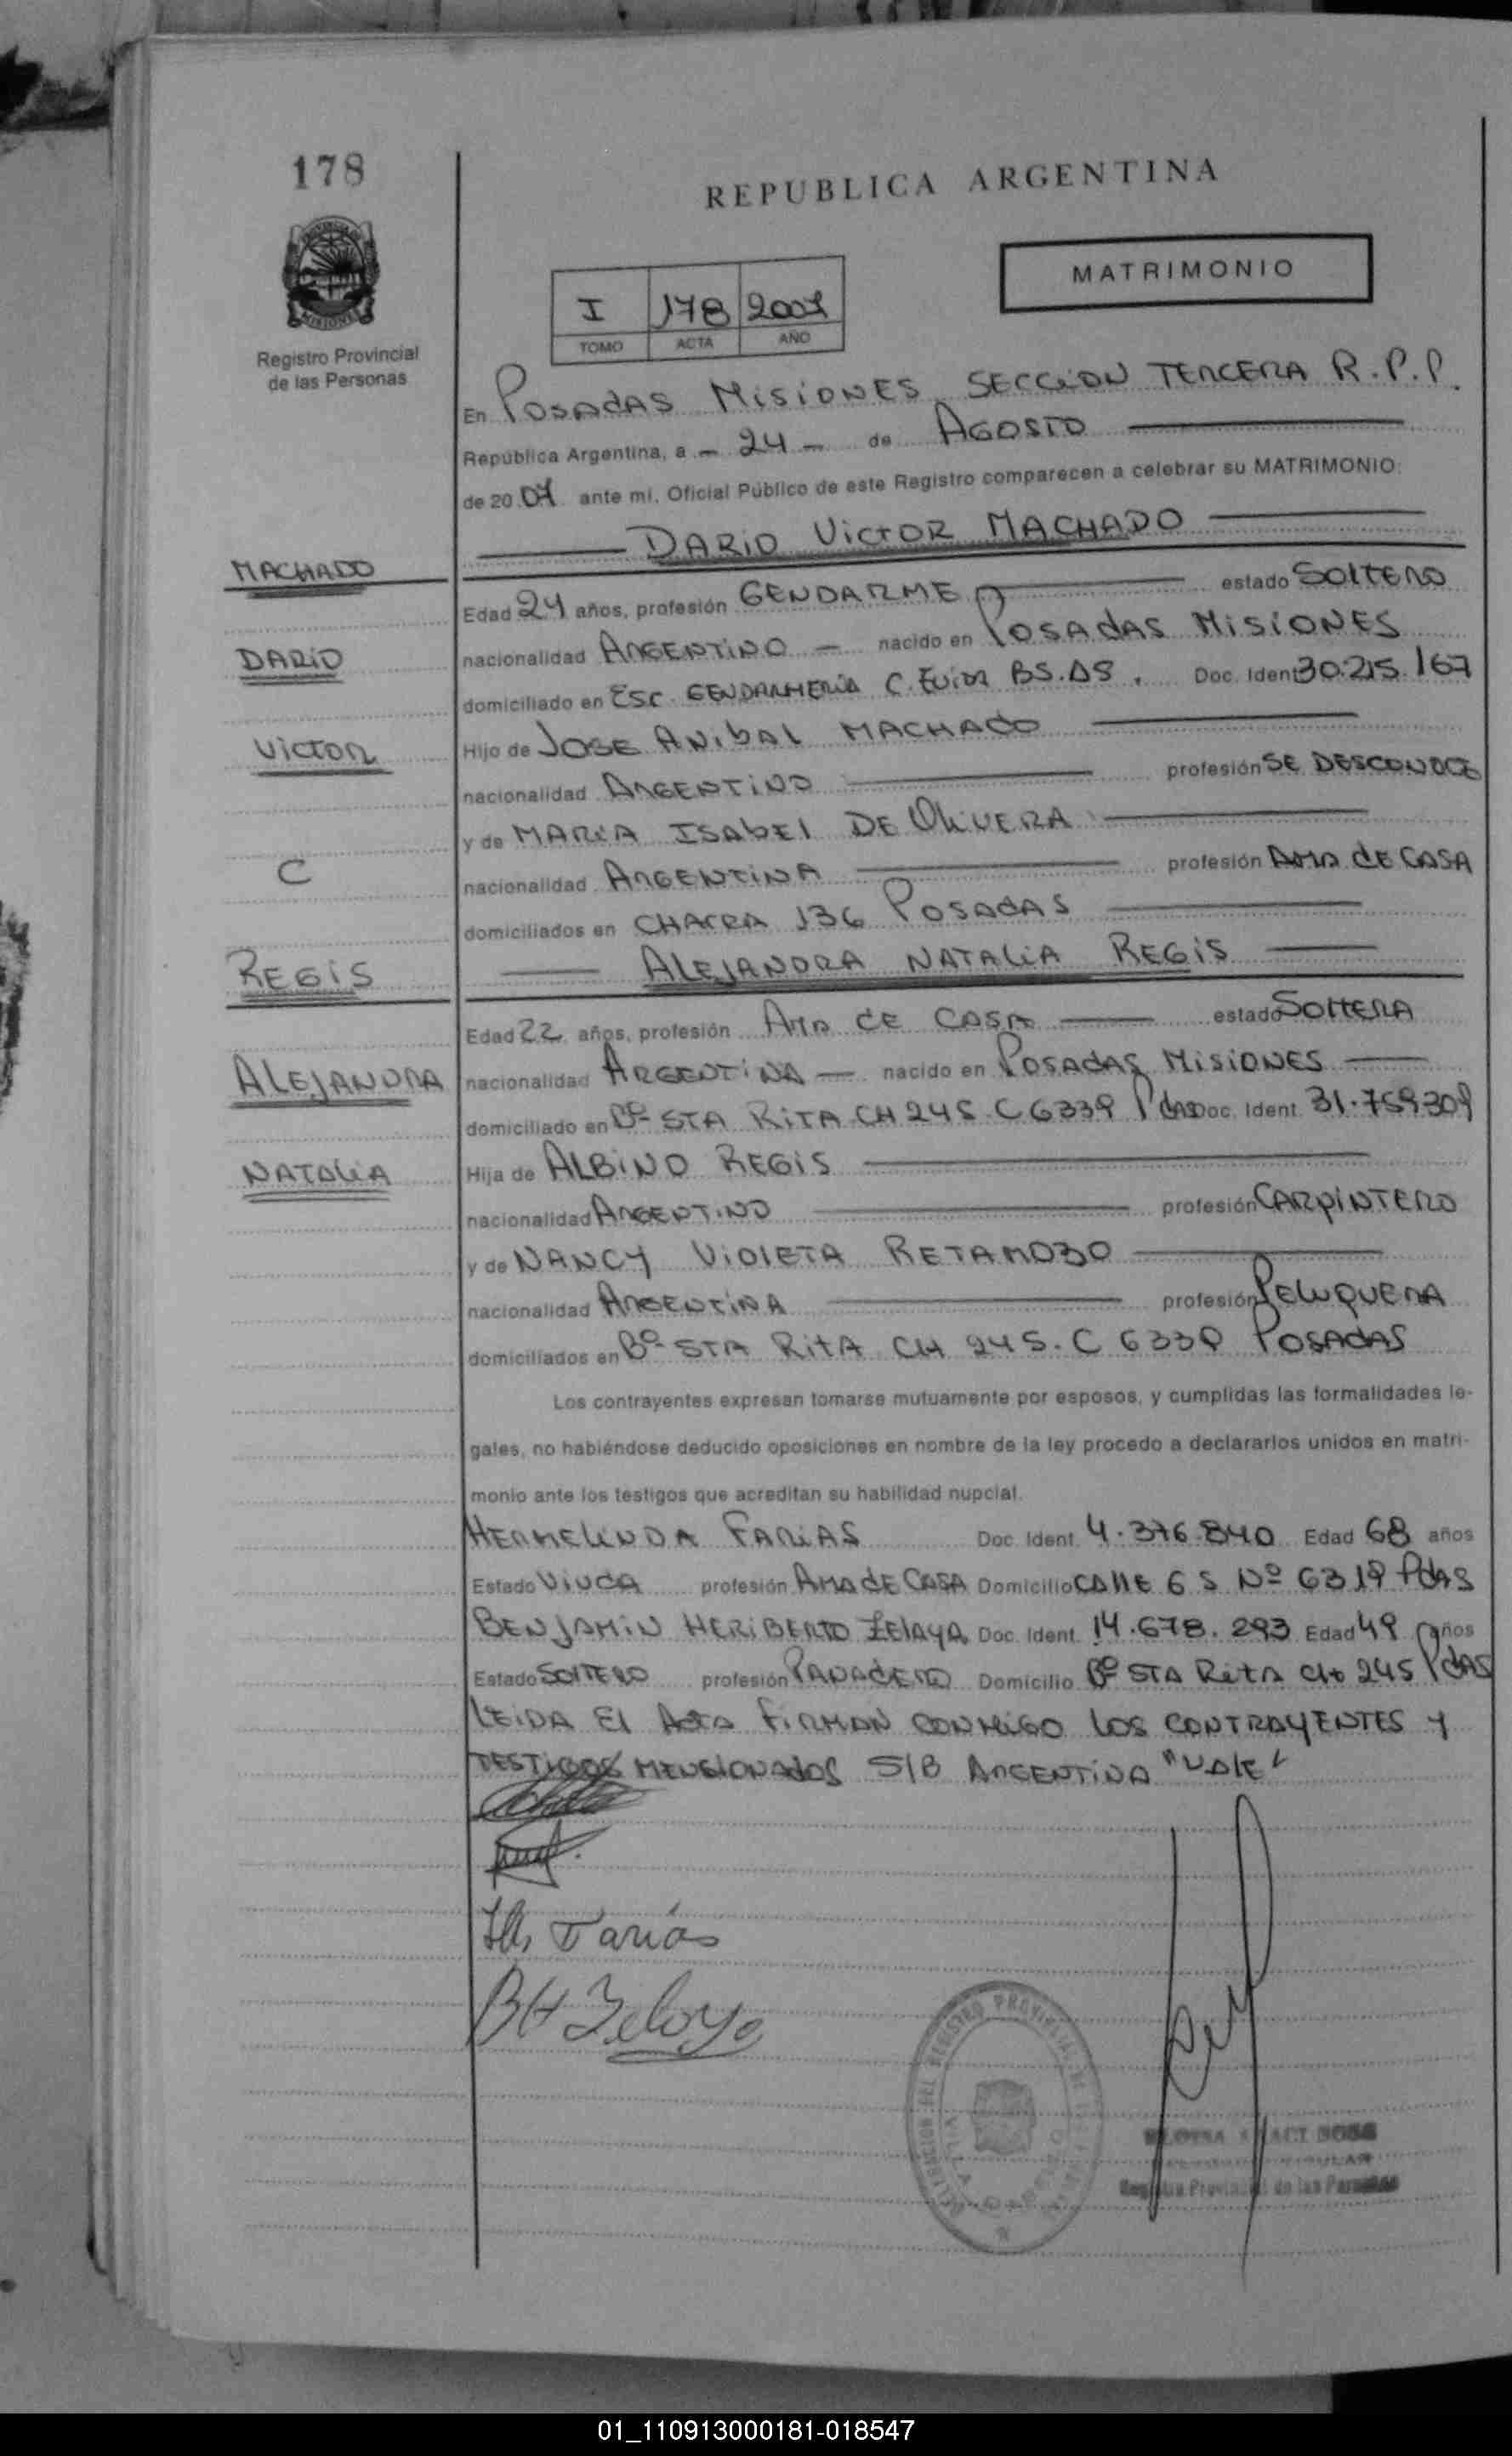 178
REPUBLICA ARGENTINA
MATRIMONIO
I 178 2007
TOMO ACTA AÑO
Registro Provincial
de las Personas
En POSADAS MISIONES SECCION TERCERA R.P.P.
República Argentina, a - 24 - de AGOSTO
de 20 07 ante mi, Oficial Público de este Registro comparecen a celebrar su MATRIMONIO:
DARIO VICTOR MACHADO
MACHADO
Edad 24 años, profesión GENDARME estado SOLTERO
DARIO
nacionalidad ARGENTINO - nacido en POSADAS MISIONES
domiciliado en ESC. GENDARMERIA C. BS.AS. Doc. Ident 30.215.167
VICTOR
Hijo de JOSE ANIBAL MACHADO
nacionalidad ARGENTINO profesión SE DESCONOCE
y de MARIA ISABEL DE OLIVERA
C
nacionalidad ARGENTINA profesión AMA DE CASA
domiciliados en CHACRA 136 POSADAS
REGIS
ALEJANDRA NATALIA REGIS
Edad 22 años, profesión AMA DE CASA estado SOLTERA
ALEJANDRA
nacionalidad ARGENTINA - nacido en POSADAS MISIONES
domiciliado en Bº STA RITA CH 245 C 6339 PDAS Doc. Ident. 31.759.309
NATALIA
Hija de ALBINO REGIS
nacionalidad ARGENTINO profesión CARPINTERO
y de NANCY VIOLETA RETAMOZO
nacionalidad ARGENTINA profesión PELUQUERA
domiciliados en Bº STA RITA CH 245. C 6339 POSADAS
Los contrayentes expresan tomarse mutuamente por esposos, y cumplidas las formalidades le-
gales, no habiéndose deducido oposiciones en nombre de la ley procedo a declararlos unidos en matri-
monio ante los testigos que acreditan su habilidad nupcial.
HERMELINDA FARIAS Doc. Ident. 4.376.840 Edad 68 años
Estado VIUDA profesión AMA DE CASA Domicilio CALLE 65 Nº 6319 PDAS
BENJAMIN HERIBERTO ZELAYA Doc. Ident. 14.678.293 Edad 49 años
Estado SOLTERO profesión PANADERO Domicilio Bº STA RITA CH 245 PDAS
LEIDA EL ACTA FIRMAN CONMIGO LOS CONTRAYENTES Y
TESTIGOS MENSIONADOS S/B ARGENTINA "VALE"
Farias
BH Zelaya
Registro Provincial de las Personas
01_110913000181-018547